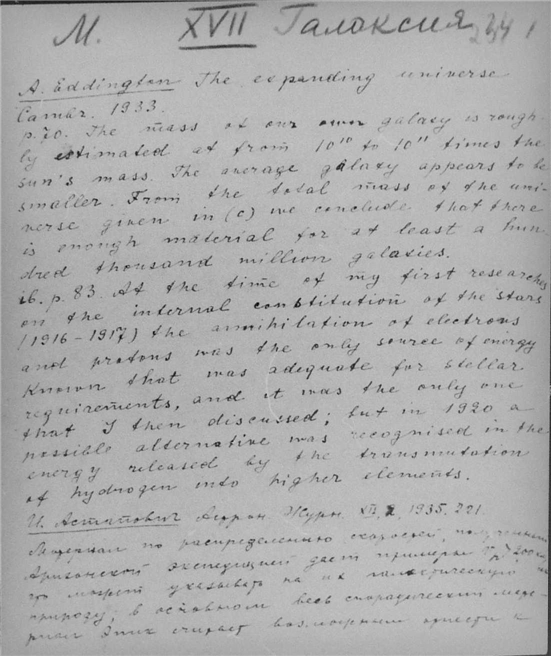 М. XVII Галаксия 234
A. Eddington The expanding universe
Cambr. 1933.
p. 70. The mass of our own galaxy is rough-
ly estimated at from 10¹⁰ to 10¹¹ times the
sun's mass. The average galaxy appears to be
smaller. From the total mass of the uni-
verse given in (c) we conclude that there
is enough material for at least a hun-
dred thousand million galaxies.
ib. p. 83. At the time of my first researches
on the internal constitution of the stars
(1916-1917) the annihilation of electrons
and protons was the only source of energy
known that was adequate for stellar
requirements, and it was the only one
that I then discussed; but in 1920 a
possible alternative was recognised in the
energy released by the transmutation
of hydrogen into higher elements.
И. Астапович Астрон. Журн. XII, 1935. 221.
Материал по распределению скоростей, полученный
Аризонской экспедицией дает примеры
что может указывать на их галактическую
природу; в основном весь спорадический мате-
риал Эпик считает возможным отнести к